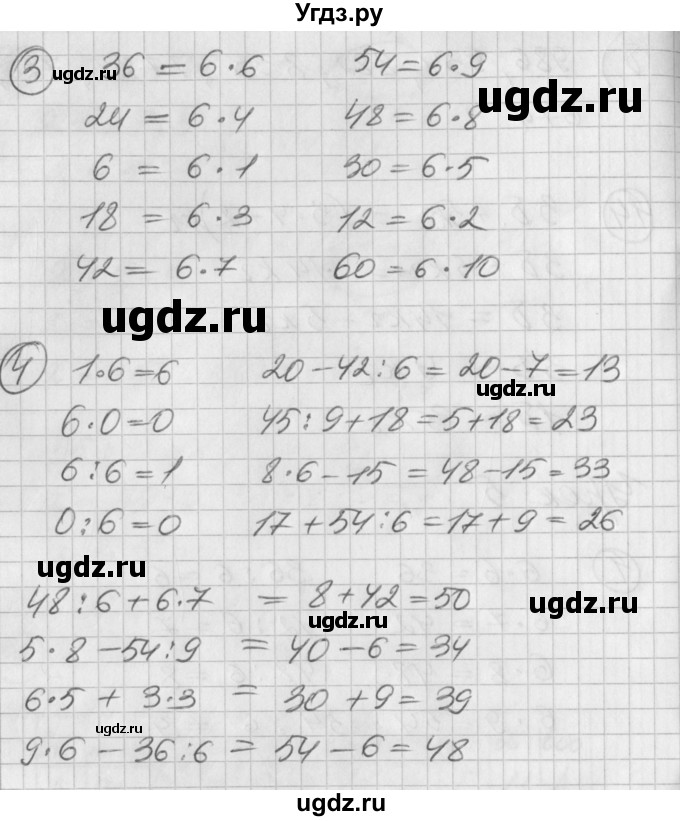 Угдз.ру
3 36 = 6·6 54 = 6·9
ugdz.ru
ugdz.ru
24 = 6·4 48 = 6·8
6 = 6·1 30 = 6·5
18 = 6·3 12 = 6·2
42 = 6·7 60 = 6·10
ugdz.ru
4 1·6=6 20-42:6 = 20-7=13
ugdz.ru
6·0=0 45:9+18=5+18=23
6:6=1 8·6-15 = 48-15=33
0:6=0 17+54:6=17+9=26
ugdz.ru
48:6+6·7 = 8+42=50
ugdz.ru
ugdz.ru
5·8-54:9 = 40-6=34
6·5 + 3·3 = 30+9=39
ugdz.ru
9·6-36:6 = 54-6=48
ugdz.ru